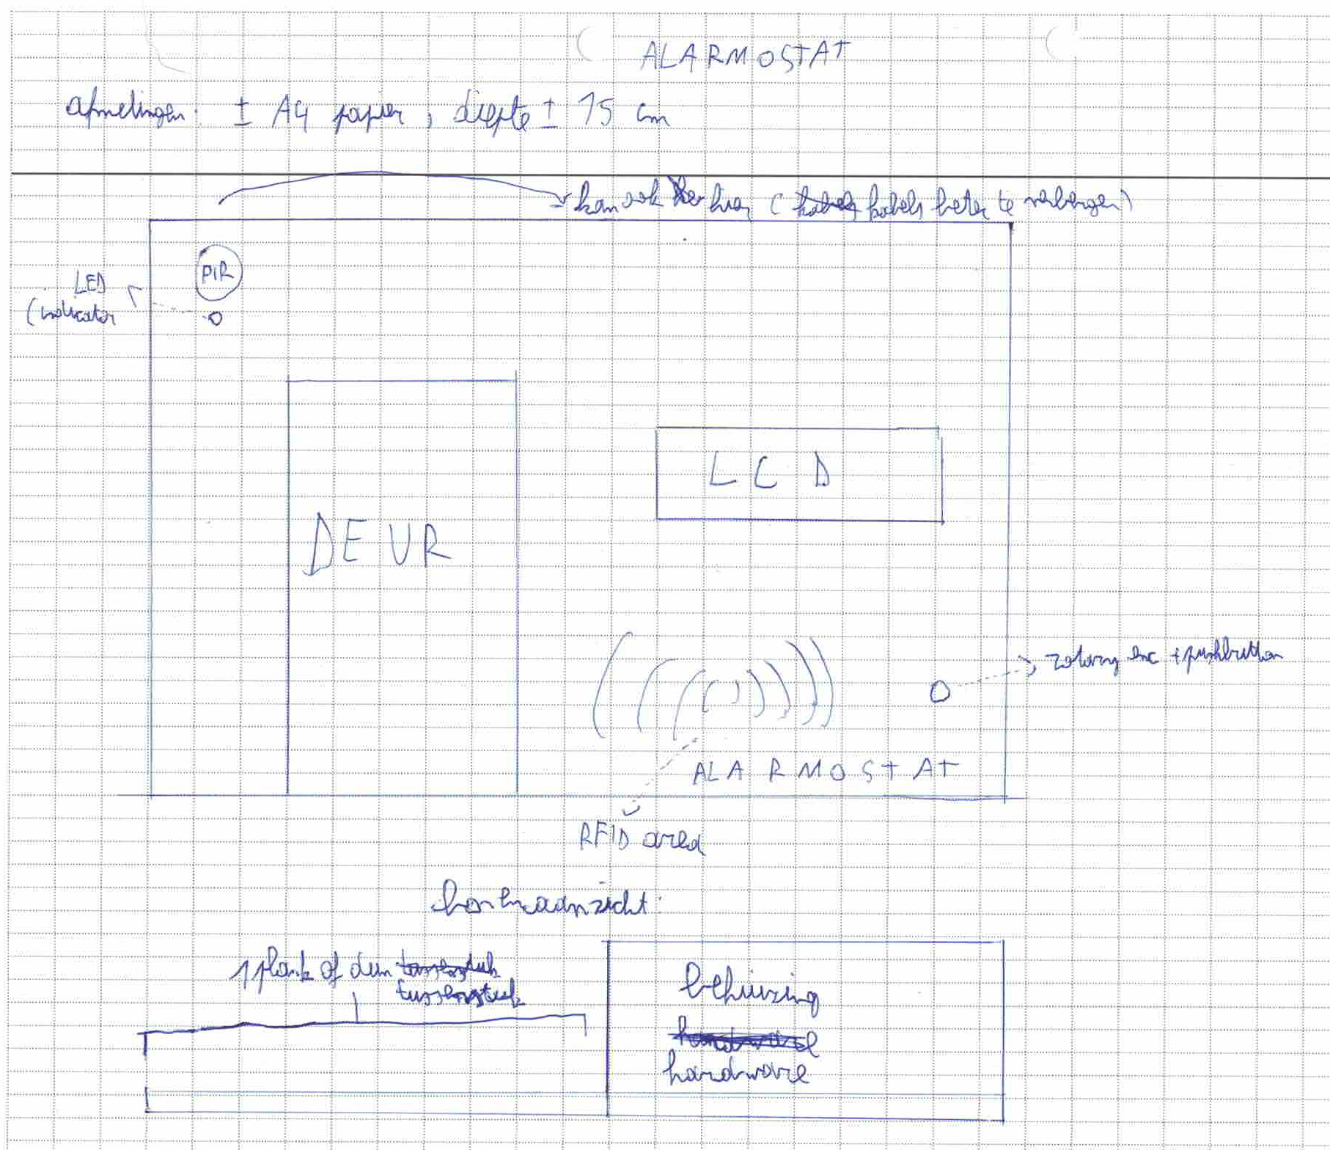 ALARMOSTAT
afmetingen: ± A4 papier, diepte ± 15 cm
kan ook hier (kabels beter te verbergen)
PIR
LED
(indicator
LCD
DEUR
rotary enc + pushbutton
ALARMOSTAT
RFID area
bovenaanzicht:
1 plank of dun
tussenstuk
behuizing
hardware